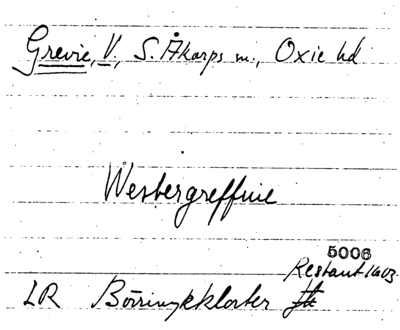 Grevie, V., S. Åkarps m., Oxie hd
Westergreffuie
5006
Restant 1603
LR Börringkloster